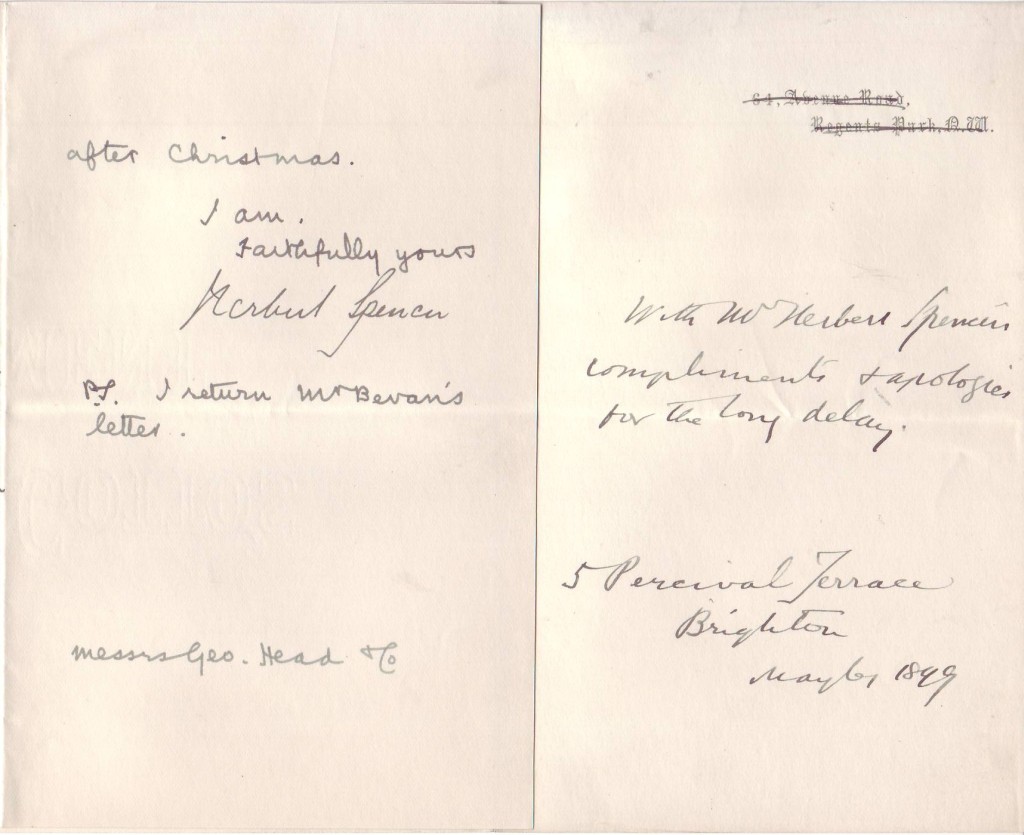 after Christmas.
I am.
Faithfully yours
Herbert Spencer
P.S. I return Mr Bevan's
letter.
Messrs Geo. Head & Co
64, Avenue Road,
Regents Park, N.W.
With Mr Herbert Spencer's
compliments & apologies
for the long delay.
5 Percival Terrace
Brighton
May 6, 1899